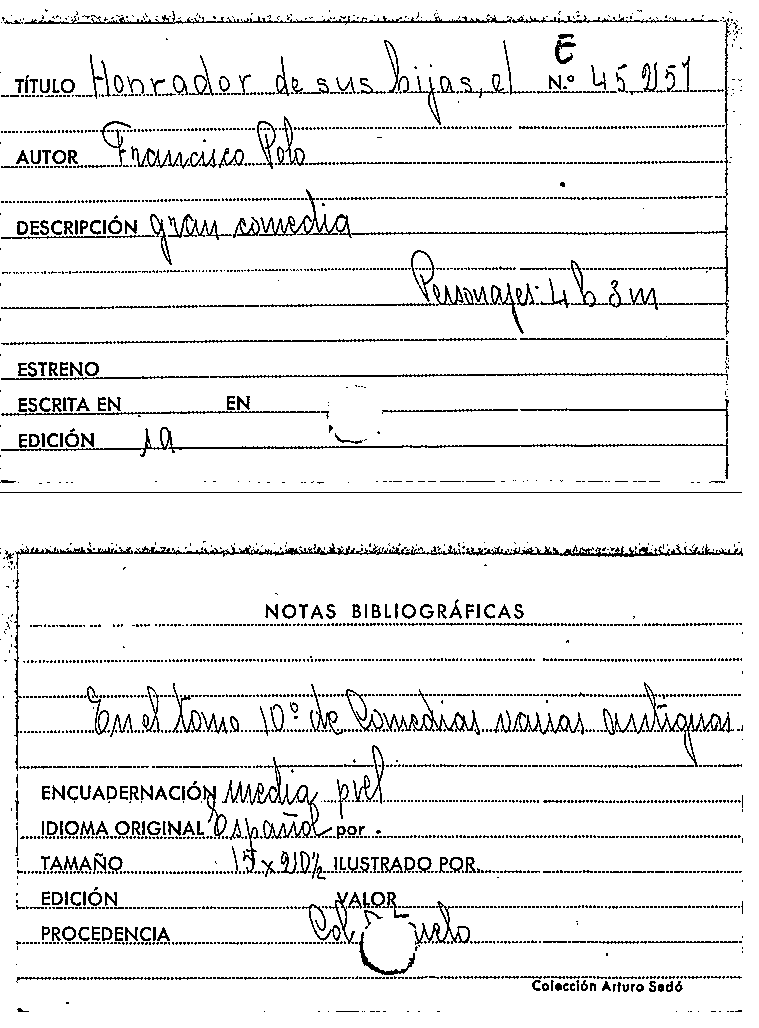 E
TÍTULO Honrador de sus hijas, el N.º 45.257
AUTOR Francisco Polo
DESCRIPCIÓN gran comedia
Personajes: 4 h 3 m
ESTRENO
ESCRITA EN EN
EDICIÓN 1a
NOTAS BIBLIOGRÁFICAS
En el tomo 10º de Comedias varias antiguas
ENCUADERNACIÓN media piel
IDIOMA ORIGINAL español por
TAMAÑO 15 x 20½ ILUSTRADO POR
EDICIÓN VALOR
PROCEDENCIA Col
Colección Arturo Sedó